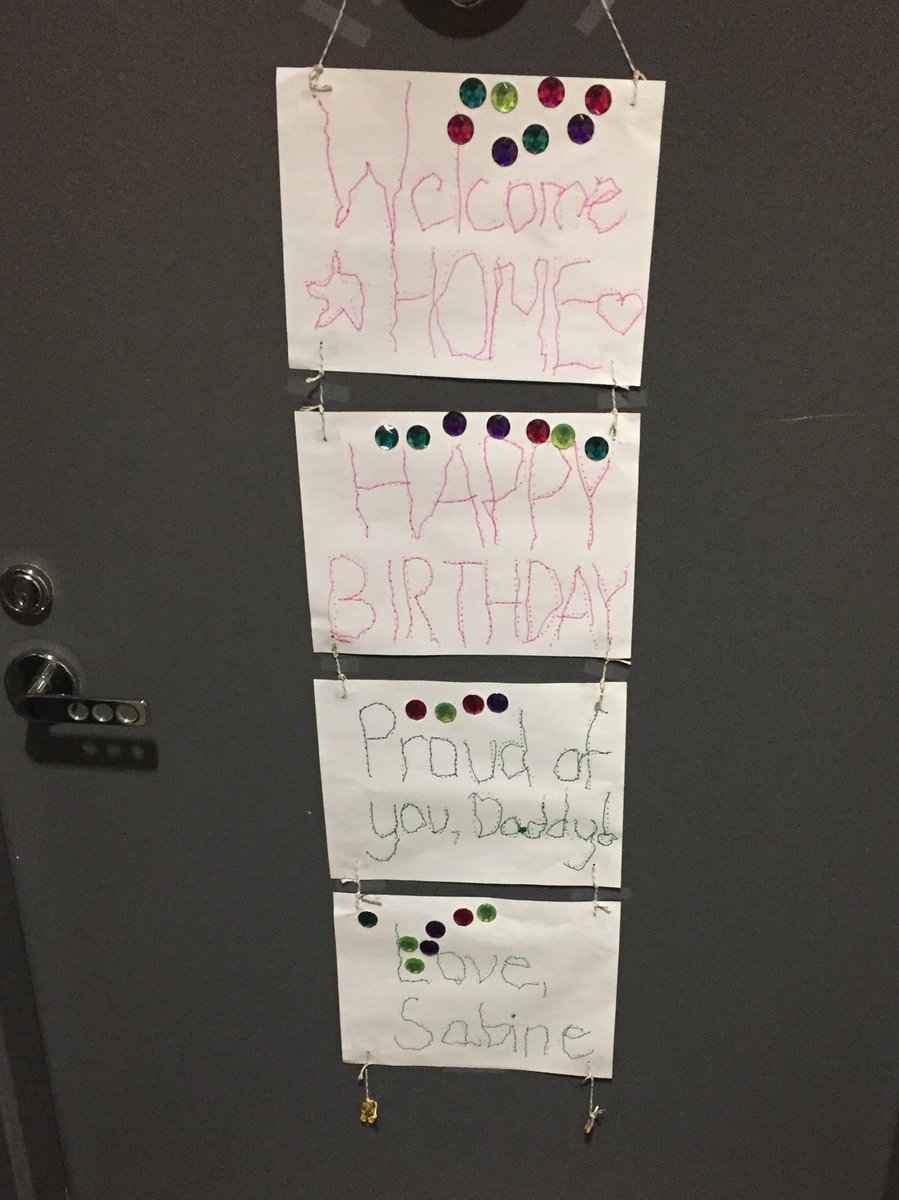 Welcome
HOME
HAPPY
BIRTHDAY
Proud of
you, Daddy!
Love,
Sabine